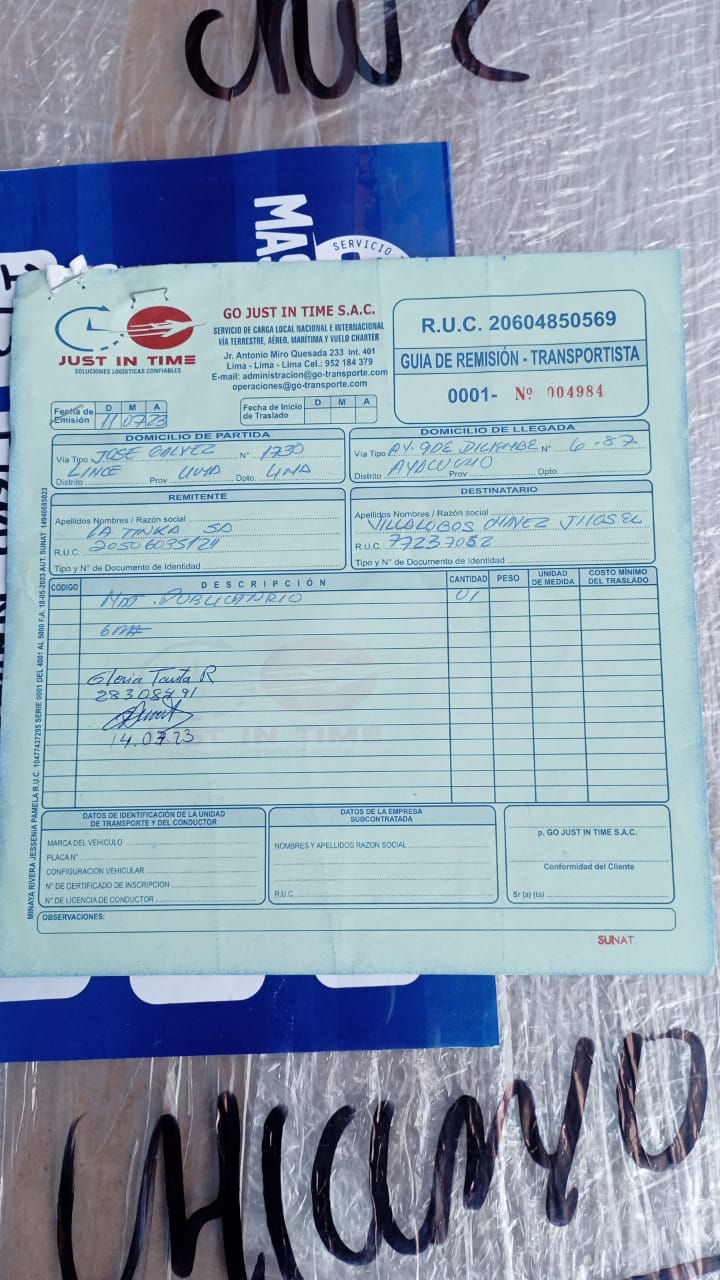 MAS
SERVICIO
JUST IN TIME
SOLUCIONES LOGÍSTICAS CONFIABLES
GO JUST IN TIME S.A.C.
SERVICIO DE CARGA LOCAL NACIONAL E INTERNACIONAL
VÍA TERRESTRE, AÉREO, MARÍTIMA Y VUELO CHARTER
Jr. Antonio Miro Quesada 233 Int. 401
Lima - Lima - Lima Cel.: 952 184 379
E-mail: administracion@go-transporte.com
operaciones@go-transporte.com
R.U.C. 20604850569
GUIA DE REMISIÓN - TRANSPORTISTA
0001- Nº 004984
Fecha de Emisión D M A
11 07 23
Fecha de Inicio de Traslado D M A
DOMICILIO DE PARTIDA
Via Tipo JOSE GALVEZ N° 1730
Distrito LINCE Prov LIMA Dpto. LIMA
DOMICILIO DE LLEGADA
Via Tipo AV. 9 DE DICIEMBRE N°
Distrito AYACUCHO Prov Dpto.
REMITENTE
Apellidos Nombres / Razón social
LA TINKA SA
R.U.C.
Tipo y N° de Documento de Identidad
DESTINATARIO
Apellidos Nombres / Razón social
VILLALOBOS CHAVEZ
R.U.C. 77237052
Tipo y N° de Documento de Identidad
CÓDIGO DESCRIPCIÓN CANTIDAD PESO UNIDAD DE MEDIDA COSTO MÍNIMO DEL TRASLADO
MAT. PUBLICITARIO 01
Gloria R
28308491
14.07.23
DATOS DE IDENTIFICACIÓN DE LA UNIDAD
DE TRANSPORTE Y DEL CONDUCTOR
MARCA DEL VEHICULO
PLACA N°
CONFIGURACION VEHICULAR
N° DE CERTIFICADO DE INSCRIPCION
N° DE LICENCIA DE CONDUCTOR
DATOS DE LA EMPRESA
SUBCONTRATADA
NOMBRES Y APELLIDOS RAZON SOCIAL
R.U.C.
p. GO JUST IN TIME S.A.C.
Conformidad del Cliente
Sr (a) (ta)
OBSERVACIONES:
SUNAT
MINAYA RIVERA JESSENIA PAMELA R.U.C. 10477437295 SERIE 0001 DEL 4001 AL 5000 F.A. 18-05-2023 AUT. SUNAT: 14940685023